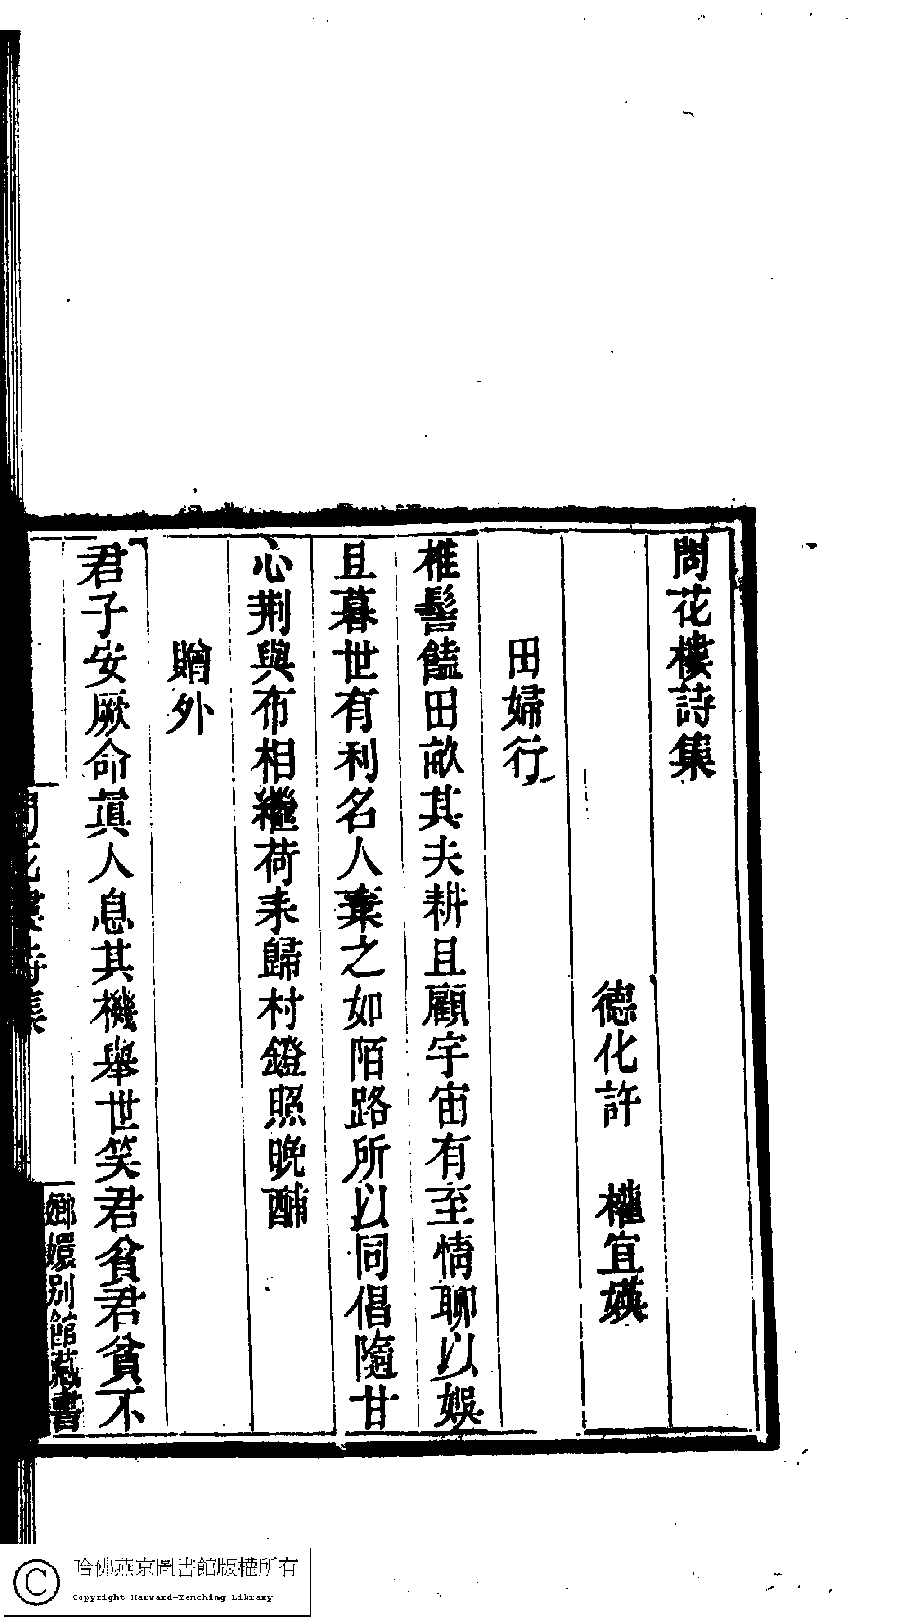 問花樓詩集
德化許　權宜媖
田婦行
椎髻饁田畝其夫耕且顧宇宙有至情聊以娛
旦暮世有利名人棄之如陌路所以同倡隨甘
心荆與布相繼荷耒歸村鐙照晚酺
贈外
君子安厥命眞人息其機舉世笑君貧君貧不
問花樓詩集
嫏嬛別館藏書
哈佛燕京圖書館版權所有
Copyright Harvard-Yenching Library